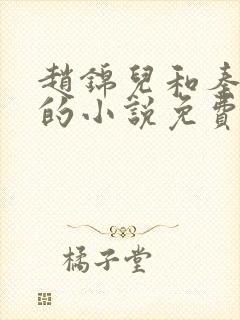 趙錦兒和秦
的小說免費
橘子堂